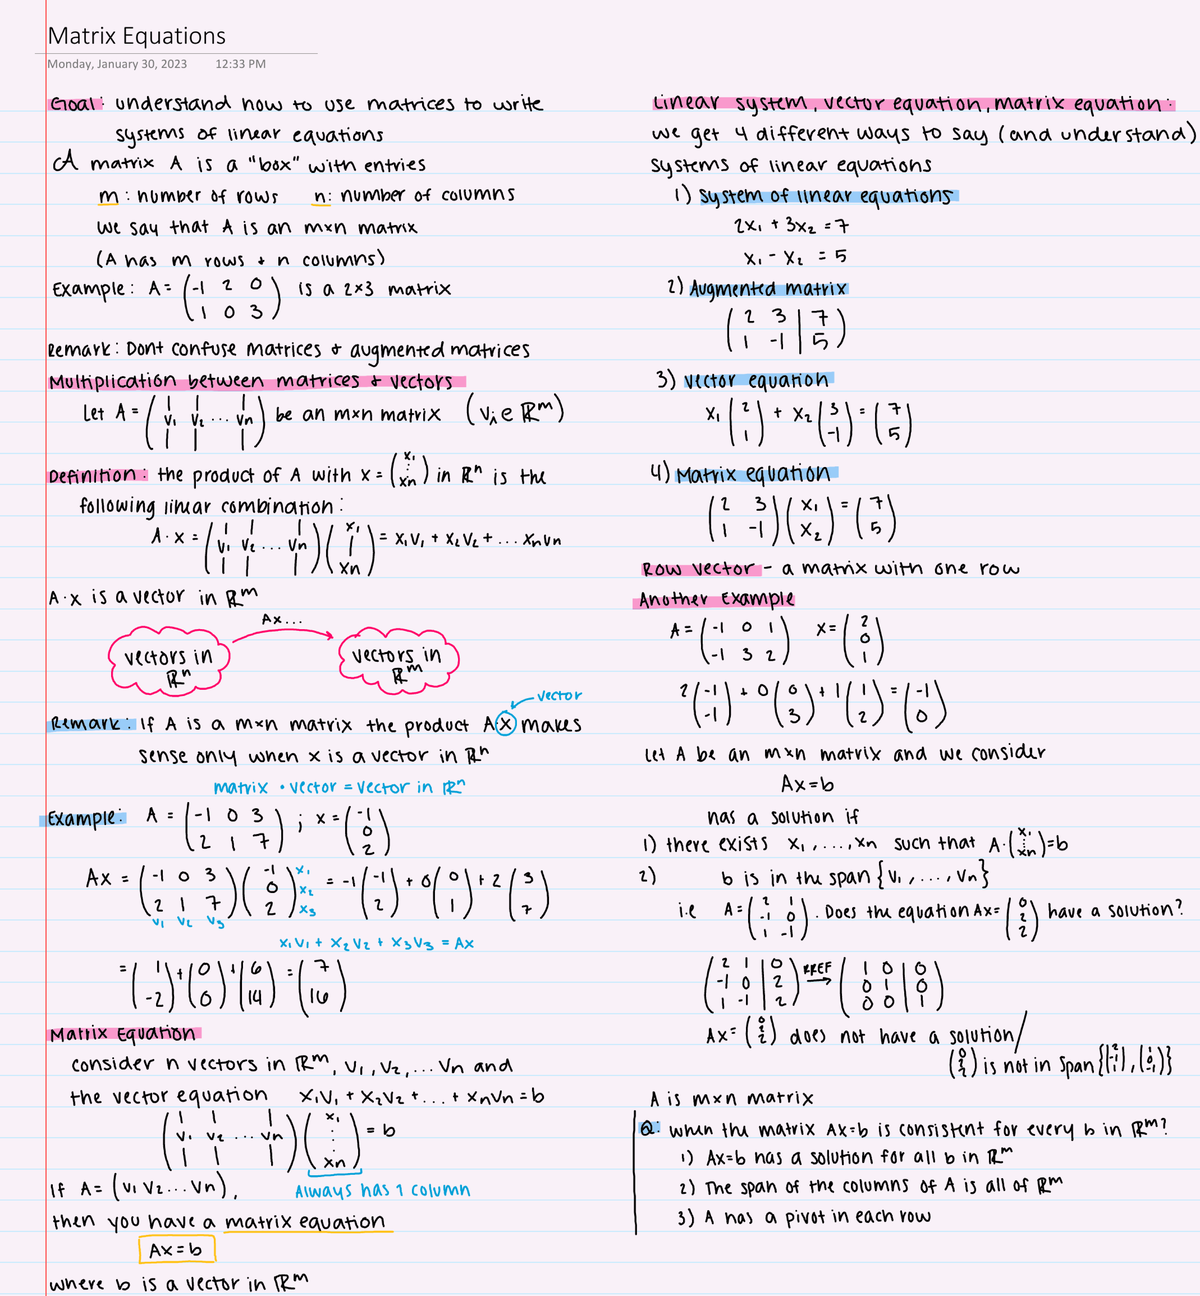 Matrix Equations
Monday, January 30, 2023 12:33 PM
Goal: understand how to use matrices to write
systems of linear equations
A matrix A is a "box" with entries
m: number of rows n: number of columns
We say that A is an m×n matrix
(A has m rows + n columns)
Example: A = (-1 2 0
1 0 3) is a 2×3 matrix
Remark: Dont confuse matrices & augmented matrices
Multiplication between matrices & vectors
Let A = (v₁ v₂ ... vn) be an m×n matrix (vᵢ ∈ ℝᵐ)
Definition: the product of A with x = (x₁ ⋮ xn) in ℝⁿ is the
following linear combination:
A·x = (v₁ v₂ ... vn)(x₁ | xn) = x₁v₁ + x₂v₂ + ... xnvn
A·x is a vector in ℝᵐ
Ax...
vectors in ℝⁿ
vectors in ℝᵐ
vector
Remark: If A is a m×n matrix the product A·x makes
sense only when x is a vector in ℝⁿ
matrix · vector = vector in ℝⁿ
Example: A = (-1 0 3
2 1 7) ; x = (-1
0
2)
Ax = (-1 0 3
2 1 7) (-1
0
2) x₁ x₂ x₃ = -1(-1
2) + 0(0
1) + 2(3
7)
v₁ v₂ v₃
x₁v₁ + x₂v₂ + x₃v₃ = Ax
= (1
-2) + (0
0) + (6
14) = (7
16)
Matrix Equation
consider n vectors in ℝᵐ, v₁, v₂, ... vn and
the vector equation x₁v₁ + x₂v₂ + ... + xnvn = b
(v₁ v₂ ... vn)(x₁ ⋮ xn) = b
If A = (v₁ v₂ ... vn), Always has 1 column
then you have a matrix equation
Ax=b
where b is a vector in ℝᵐ
Linear system, vector equation, matrix equation:
we get 4 different ways to say (and understand)
systems of linear equations
1) System of linear equations
2x₁ + 3x₂ = 7
x₁ - x₂ = 5
2) Augmented matrix
(2 3 | 7
1 -1 | 5)
3) Vector equation
x₁(2
1) + x₂(3
-1) = (7
5)
4) Matrix equation
(2 3
1 -1)(x₁
x₂) = (7
5)
Row vector - a matrix with one row
Another Example
A = (-1 0 1
-1 3 2) x = (2
0
1)
2(-1
-1) + 0(0
3) + 1(1
2) = (-1
0)
Let A be an m×n matrix and we consider
Ax=b
has a solution if
1) there exists x₁, ..., xn such that A·(x₁ ⋮ xn)=b
2) b is in the span {v₁, ..., vn}
i.e A = (2 1
-1 0
1 -1). Does the equation Ax = (0
2
2) have a solution?
(2 1 | 0
-1 0 | 2
1 -1 | 2) RREF → (1 0 | 0
0 1 | 0
0 0 | 1)
Ax = (0
2
2) does not have a solution/
(0
2
2) is not in span{(2
-1
1), (1
0
-1)}
A is m×n matrix
Q: when the matrix Ax=b is consistent for every b in ℝᵐ?
1) Ax=b has a solution for all b in ℝᵐ
2) The span of the columns of A is all of ℝᵐ
3) A has a pivot in each row